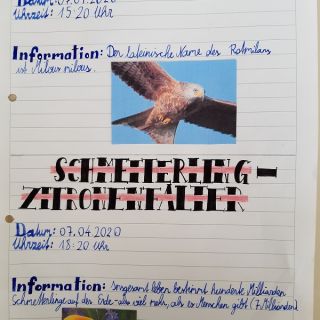 Datum: 07.04.2020
Uhrzeit: 15:20 Uhr
Information: Der lateinische Name des Rotmilans
ist Milvus milvus.
SCHMETTERLING -
ZITRONENFALTER
Datum: 07.04.2020
Uhrzeit: 18:20 Uhr
Information: Insgesamt leben bestimmt hunderte Milliarden
Schmetterlinge auf der Erde - also viel mehr, als es Menschen gibt (7 Milliarden)